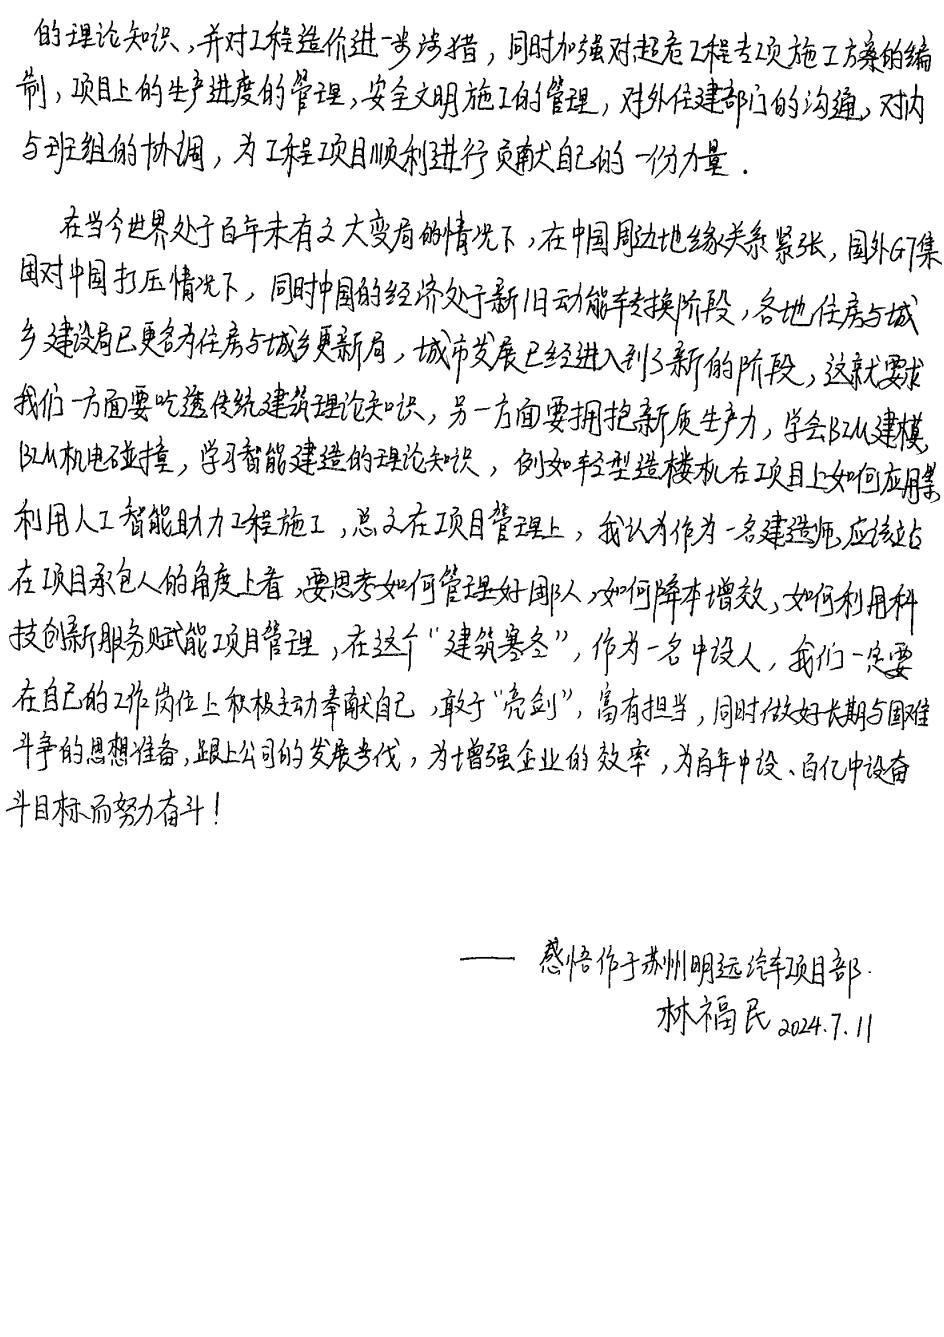 的理论知识,并对工程造价进一步涉猎,同时加强对超危工程专项施工方案的编
制,项目上的生产进度的管理,安全文明施工的管理,对外住建部门的沟通,对内
与班组的协调,为工程项目顺利进行贡献自己的一份力量.
在当今世界处于百年未有之大变局的情况下,在中国周边地缘关系紧张,国外G7集
团对中国打压情况下,同时中国的经济处于新旧动能转换阶段,各地住房与城
乡建设局已更名为住房与城乡更新局,城市发展已经进入到了新的阶段,这就要求
我们一方面要吃透传统建筑理论知识,另一方面要拥抱新质生产力,学会BIM建模,
BIM机电碰撞,学习智能建造的理论知识,例如轻型造楼机在项目上如何应用,
利用人工智能助力工程施工,总之在项目管理上,我认为作为一名建造师,应该站
在项目承包人的角度上看,要思考如何管理好团队,如何降本增效,如何利用科
技创新服务赋能项目管理,在这个“建筑寒冬”,作为一名中设人,我们一定要
在自己的工作岗位上积极主动奉献自己,敢于“亮剑”,富有担当,同时做好长期与困难
斗争的思想准备,跟上公司的发展步伐,为增强企业的效率,为百年中设、百亿中设奋
斗目标而努力奋斗!
—— 感悟作于苏州明远汽车项目部.
林福民 2024.7.11